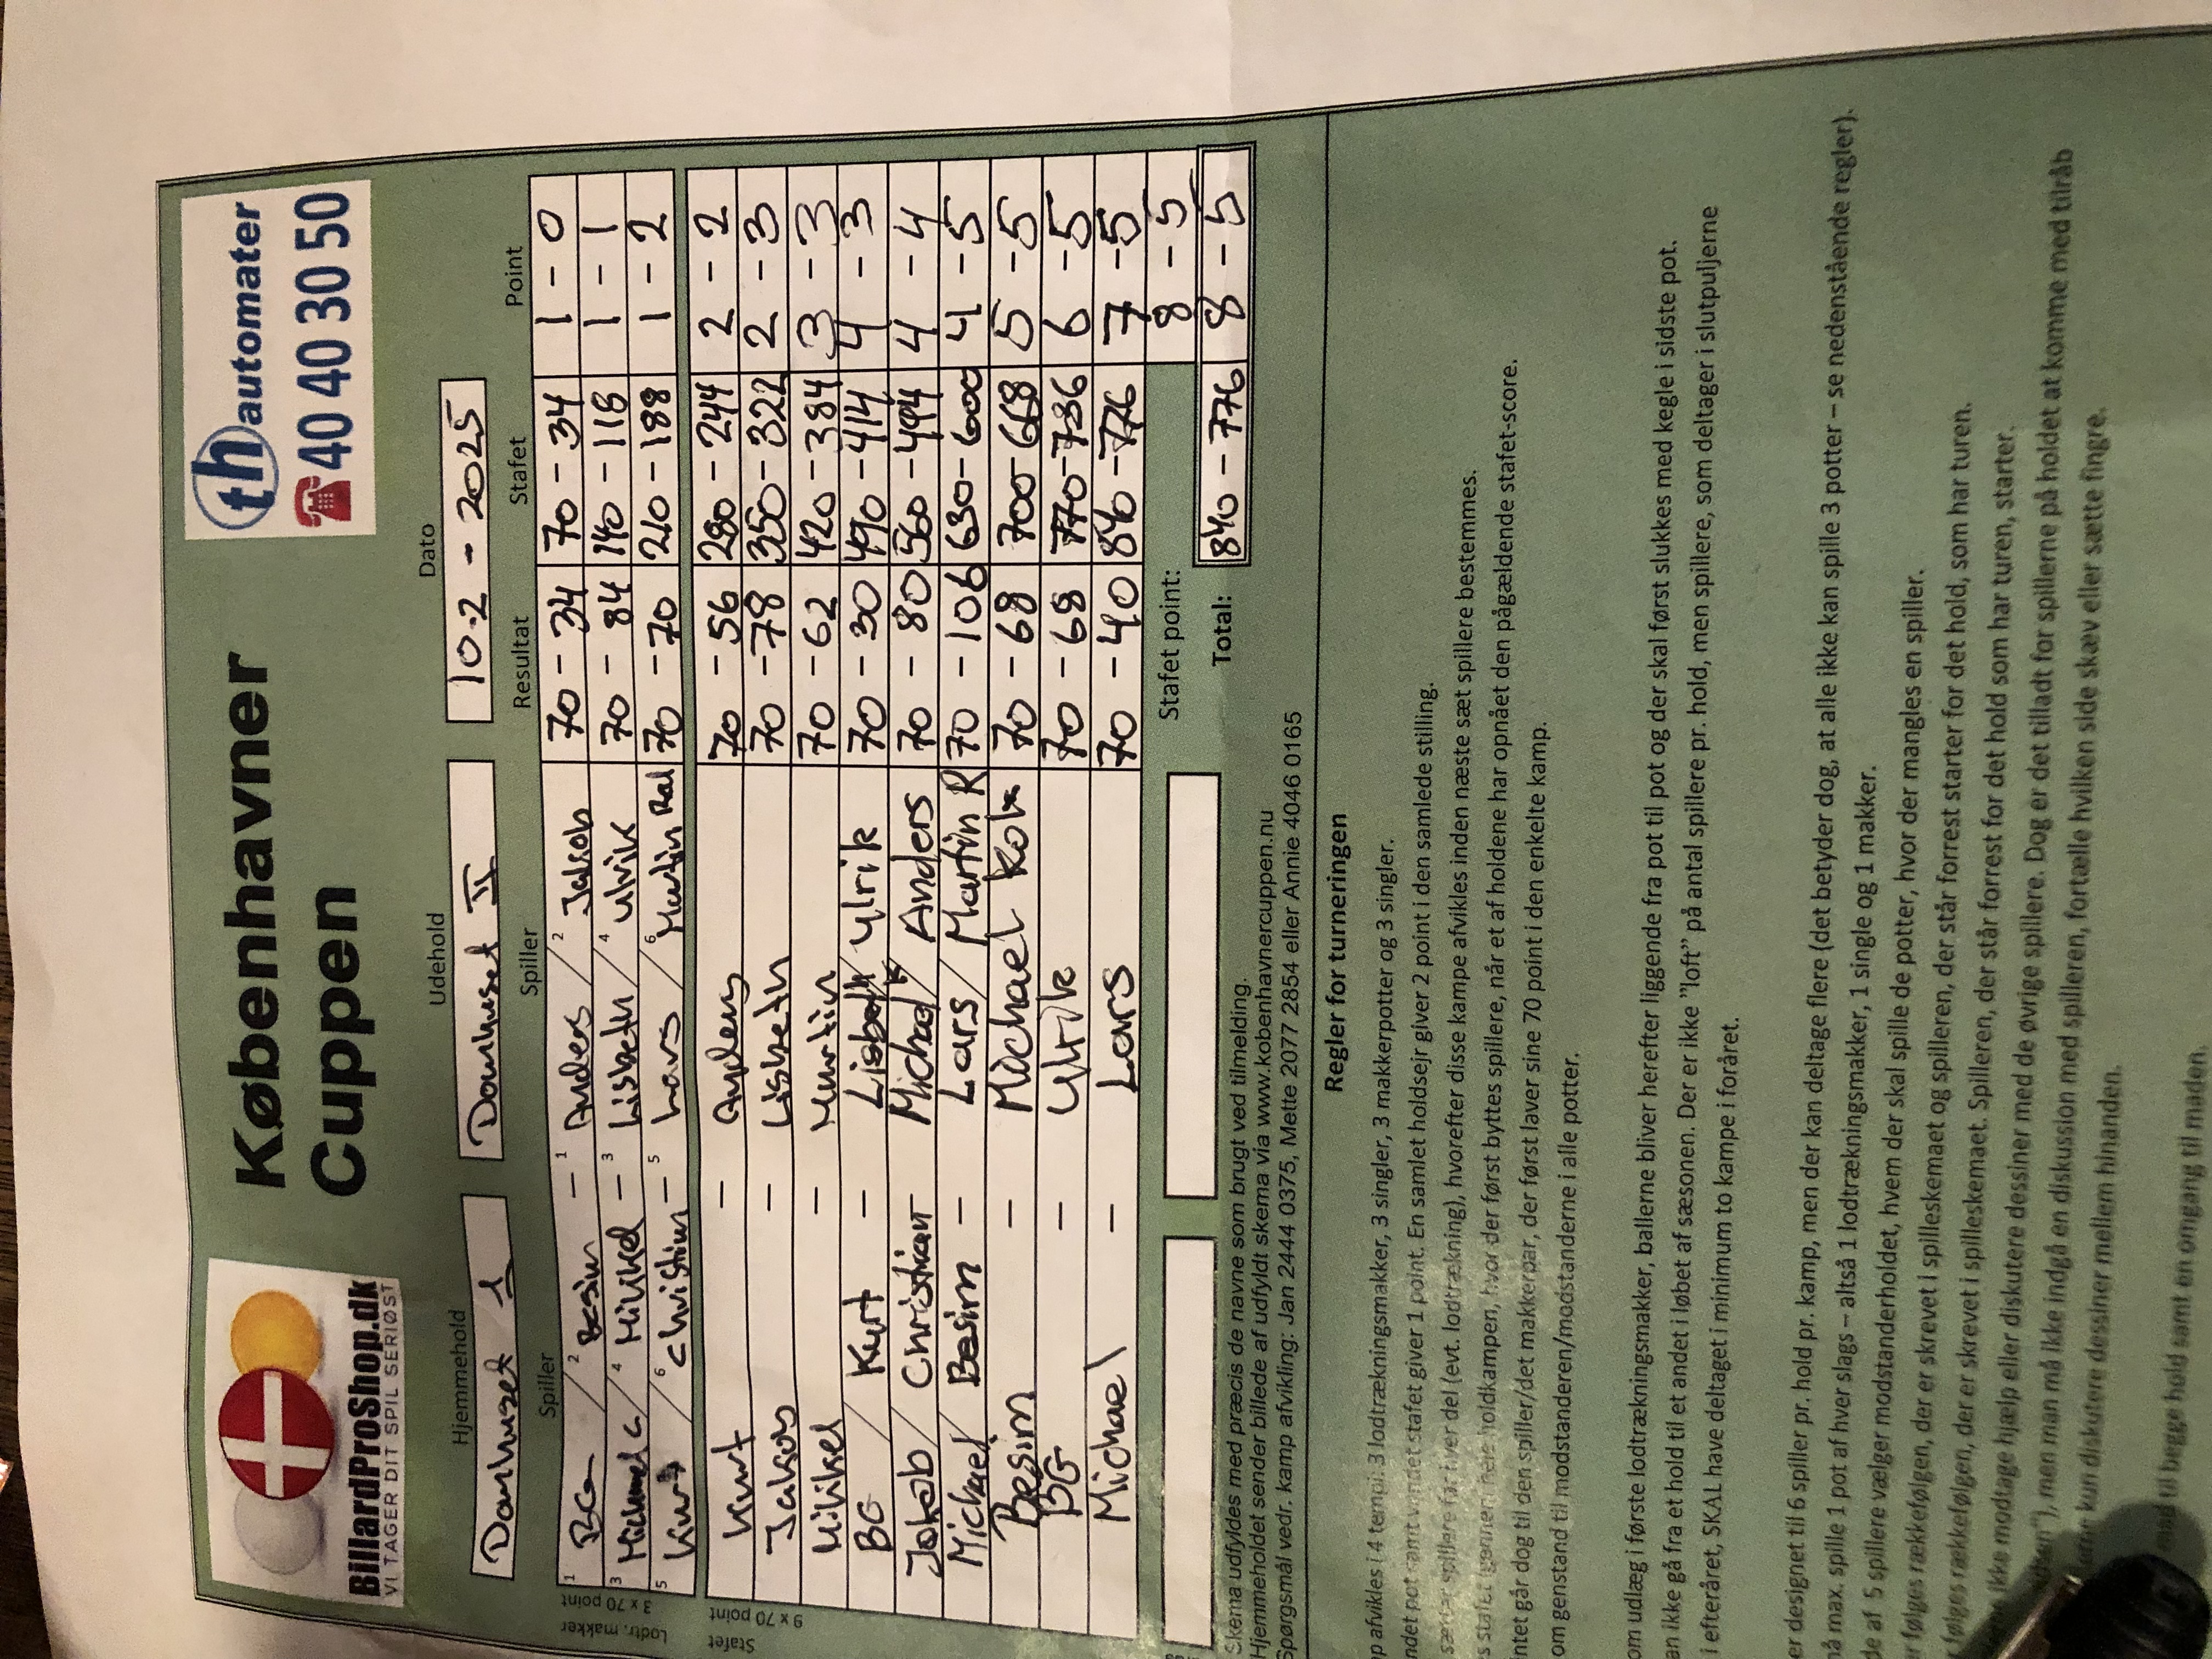 BillardProShop.dk
VI TAGER DIT SPIL SERIØST
Københavner
Cuppen
th automater
40 40 30 50
Hjemmehold Udehold Dato
Domhuset 1 Domhuset II 10-2-2025
Spiller Spiller Resultat Stafet Point
Lodtr. makker
3 x 70 point
1 BG / 2 Besim - 1 Anders / 2 Jakob 70-34 70-34 1-0
3 Michael C / 4 Mikkel - 3 Lisbeth / 4 Ulrik 70-84 140-118 1-1
5 Kurt / 6 Christian - 5 Lars / 6 Martin Ral 70-70 210-188 1-2
Stafet
9 x 70 point
Kurt - Anders 70-56 280-244 2-2
Jakob - Lisbeth 70-78 350-322 2-3
Mikkel - Martin 70-62 420-384 3-3
BG / Kurt - Lisbeth / Ulrik 70-30 490-414 4-3
Jakob / Christian - Michael K / Anders 70-80 560-494 4-4
Mickael / Besim - Lars / Martin R 70-106 630-600 4-5
Besim - Michael 70-68 700-668 5-5
BG - Ulrik 70-68 770-736 6-5
Michael - Lars 70-40 840-776 7-5
Stafet point: 8-5
Total: 840-776 8-5
Skema udfyldes med præcis de navne som brugt ved tilmelding.
Hjemmeholdet sender billede af udfyldt skema via www.københavnercuppen.nu
Spørgsmål vedr. kamp afvikling: Jan 2444 0375, Mette 2077 2854 eller Annie 4046 0165
Regler for turneringen
afvikles i 4 tempi. 3 lodtrækningsmakker, 3 singler, 3 makkerpotter og 3 singler.
ndet pot samt vundet stafet giver 1 point. En samlet holdsejr giver 2 point i den samlede stilling.
sætter spillere for hver del (evt. lodtrækning), hvorefter disse kampe afvikles inden næste sæt spillere bestemmes.
s stafet gennem hele holdkampen, hvor der først byttes spillere, når et af holdene har opnået den pågældende stafet-score.
ntet går dog til den spiller/det makkerpar, der først laver sine 70 point i den enkelte kamp.
om genstand til modstanderen/modstanderne i alle potter.
om udlæg i første lodtrækningsmakker, ballerne bliver herefter liggende fra pot til pot og der skal først slukes med kegle i sidste pot.
an ikke gå fra et hold til et andet i løbet af sæsonen. Der er ikke "loft" på antal spillere pr. hold, men spillere, som deltager i slutpuljerne
i efteråret, SKAL have deltaget i minimum to kampe i foråret.
er designet til 6 spiller pr. hold pr. kamp, men der kan deltage flere (det betyder dog, at alle ikke kan spille 3 potter – se nedenstående regler).
må max. spille 1 pot af hver slags – altså 1 lodtrækningsmakker, 1 single og 1 makker.
de af 5 spillere vælger modstanderholdet, hvem der skal spille de potter, hvor der mangles en spiller.
r følges rækkefølgen, der er skrevet i spilleskemaet og spilleren, der står forrest starter for det hold, som har turen.
følges rækkefølgen, der er skrevet i spilleskemaet. Spilleren, der står forrest for det hold som har turen, starter.
ikke modtage hjælp eller diskutere dessiner med de øvrige spillere. Dog er det tilladt for spillerne på holdet at komme med tilråb
), men man må ikke indgå en diskussion med spilleren, fortælle hvilken side skæv eller sætte fingre.
kun diskutere dessiner mellem hinanden.
mad til begge hold samt en omgang til maden.